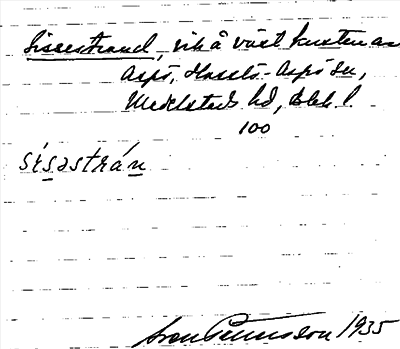 Sissestrand, vik å västkusten av
Aspö, Hasslö-Aspö sn,
Medelstads hd, Blek. l.
100
sìsəstrán
Sven Benson 1935